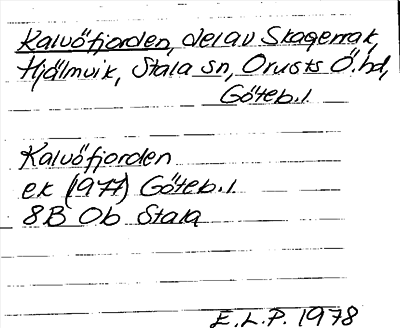 Kalvöfjorden, del av Skagerrak,
Hjälmvik, Stala sn, Orusts Ö. hd,
Göteb. l.
Kalvöfjorden
ek (1977) Göteb. l
8B Ob Stala
E.L.P. 1978